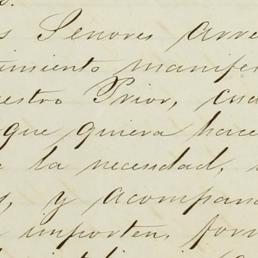 s Señores arre
cimiento manifes
uestro Prior, cua
que quiera hace
la necesidad,
s, y acompaña
importen, for